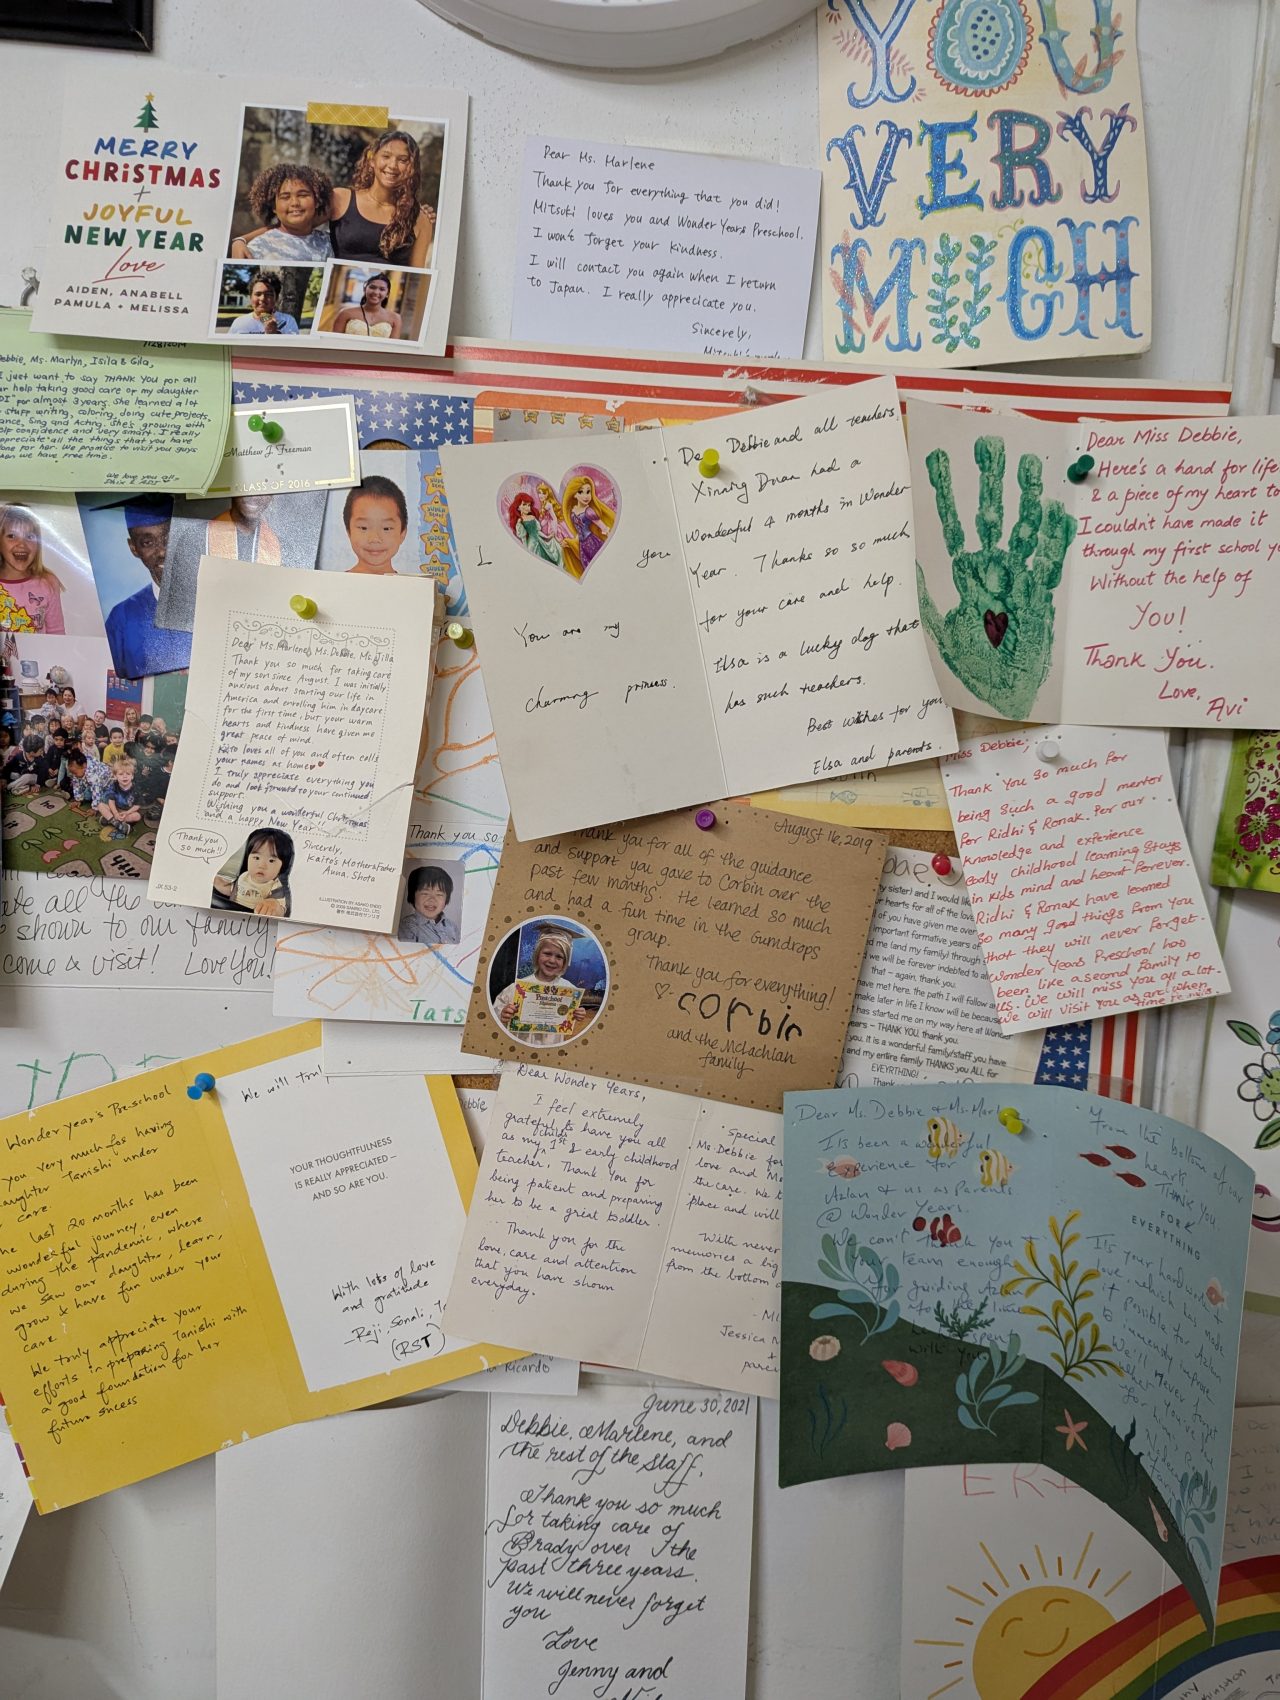 YOU
VERY
MUCH
MERRY
CHRISTMAS
+
JOYFUL
NEW YEAR
Love
AIDEN, ANABELL
PAMULA + MELISSA
Dear Ms. Marlene
Thank you for everything that you did!
Mitsuki loves you and Wonder Years Preschool.
I won't forget your kindness.
I will contact you again when I return
to Japan. I really appreciate you.
Sincerely,
Ms. Marlyn, Isila & Gila,
I just want to say THANK YOU for all
help taking good care of my daughter
for almost 3 years. She learned a lot
stuff writing, coloring, doing cute projects,
Sing and Acting. She's growing with
confidence and very smart. I really
all the things that you have
for her. We promise to visit you guys
when we have free time.
We love you all-
Matthew J. Freeman
CLASS OF 2016
SUPER
I
you
You are my
charming princess.
Debbie and all teachers.
Xinning Duan had a
Wonderful 4 months in Wonder
Year. Thanks so so much
for your care and help.
Elsa is a lucky dog that
has such teachers.
Best wishes for you.
Elsa and parents.
Dear Miss Debbie,
Here's a hand for life
& a piece of my heart to
I couldn't have made it
through my first school
Without the help of
You!
Thank You.
Love,
Avi
Dear Ms. Marlene, Ms. Debbie, Ms. Jilla
Thank you so much for taking care
of my son since August. I was initially
anxious about starting our life in
America and enrolling him in daycare
for the first time, but your warm
hearts and kindness have given me
great peace of mind.
Kaito loves all of you and often calls
your names at home
I truly appreciate everything you
do and look forward to your continued
support.
Wishing you a wonderful Christmas
and a happy New Year
Thank you
so much!!
Sincerely,
Kaito's Mother & Father
Auna. Shota
JX 53-2
Thank you so
Tats
all the
shown to our family
come & visit! Love You!
Miss Debbie,
Thank you so much for
being such a good mentor
for Ridhi & Ronak. For our
knowledge and experience
Early childhood learning stays
in kids mind and heart forever.
Ridhi & Ronak have learned
so many good things from you
that they will never forget.
Wonder Years Preschool has
been like a second family to
us. We will miss you all a lot.
We will visit you as are when
time permits.
August 16, 2019
Thank you for all of the guidance
and support you gave to Corbin over the
past few months. He learned so much
and had a fun time in the Gumdrops
group.
Thank you for everything!
corbin
and the McLachlan
family
my sister) and I would like
hearts for all of the love
of you have given me over
important formative years of
me (and my family) through
we will be forever indebted to all
that – again, thank you.
have met here, the path I will follow
make later in life I know will be because
has started me on my way here at Wonder
years – THANK YOU, thank you.
It is a wonderful family/staff you have
and my entire family THANKS you ALL for
EVERYTHING!
Thank
Wonder year's Pre-school
you very much for having
daughter Tanishi under
care.
The last 20 months has been
wonderful journey, even
during the pandemic, where
we saw our daughter, learn,
grow & have fun under your
care.
We truly appreciate your
efforts in preparing Tanishi with
a good foundation for her
future sucess
We will
YOUR THOUGHTFULNESS
IS REALLY APPRECIATED –
AND SO ARE YOU.
With lots of love
and gratitude
Sonali,
(RST)
Debbie,
Ricardo
Dear Wonder Years,
I feel extremely
grateful to have you all
as my child's 1st & early childhood
teacher. Thank You for
being patient and preparing
her to be a great toddler.
Thank you for the
love, care and attention
that you have shown
everyday.
Special
Ms. Debbie for
love and
the care. We
place and will
With never
memories a big
from the bottom
Jessica
+
Dear Ms. Debbie & Ms. Marl
It's been a wonderful
experience for
Azlan & us as Parents
@ Wonder Years.
We can't thank you &
your team enough
for guiding Azlan
with you.
From the bottom of our
hearts,
THANK YOU
FOR
EVERYTHING
It's your hardwork,
love, which has made
it possible for Azlan
to immensly improve.
We'll never forget
what you've
for him.
June 30, 2021
Debbie, Marlene, and
the rest of the staff,
Thank you so much
for taking care of
Brady over the
past three years.
We will never forget
you
Love
Jenny and